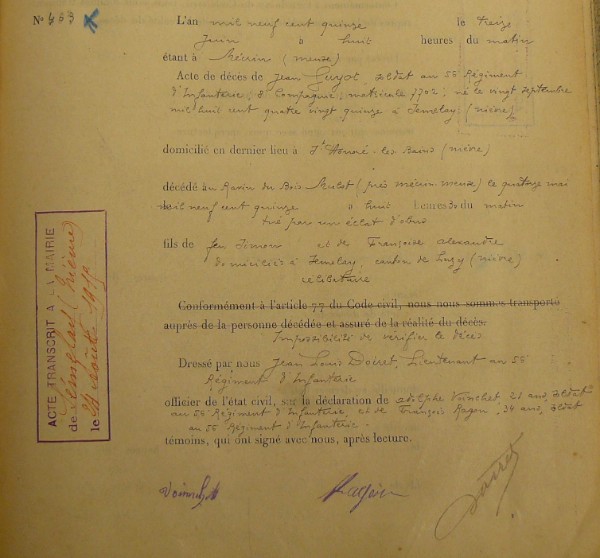 N° 433
L'an mil neuf cent quinze le treize
Juin à huit heures du matin
étant à Mécrin (meuse)
Acte de décès de Jean Guyot soldat au 56 Régiment
d'Infanterie, 8 Compagnie, matricule 7702, né le vingt septembre
mil huit cent quatre vingt quinze à Temelay (nièvre)
domicilié en dernier lieu à St Honoré-les Bains (nièvre)
décédé au Ravin du Bois Mulot (près mécrin-meuse) le quatorze mai
mil neuf cent quinze à huit heures 30 du matin
tué par un éclat d'obus
fils de Jean Simon et de Françoise Alexandre
domiciliés à Temelay, canton de Luzy (nièvre)
célibataire
Conformément à l'article 77 du Code civil, nous nous sommes transporté
auprès de la personne décédée et assuré de la réalité du décès.
Impossibilité de vérifier le décès
Dressé par nous Jean Louis Lieutenant au 56
Régiment d'Infanterie
officier de l'état civil, sur la déclaration de adolphe ans, soldat
au 56 Régiment d'Infanterie, et de François 34 ans, soldat
au 56 Régiment d'Infanterie.
témoins, qui ont signé avec nous, après lecture.
ACTE TRANSCRIT A LA MAIRIE
de (Nièvre)
le